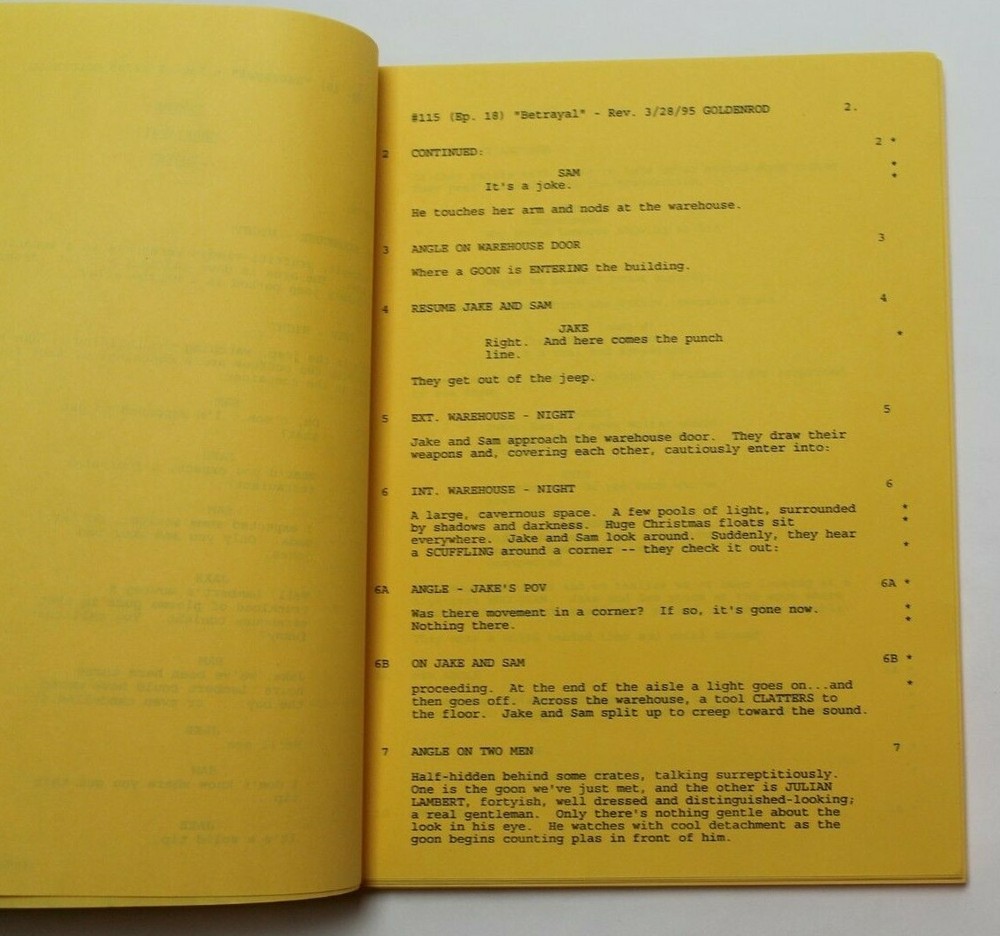 #115 (Ep. 18) "Betrayal" - Rev. 3/28/95 GOLDENROD 2.
2 CONTINUED: 2 *
SAM *
It's a joke. *
He touches her arm and nods at the warehouse.
3 ANGLE ON WAREHOUSE DOOR 3
Where a GOON is ENTERING the building.
4 RESUME JAKE AND SAM 4
JAKE
Right. And here comes the punch *
line.
They get out of the jeep.
5 EXT. WAREHOUSE - NIGHT 5
Jake and Sam approach the warehouse door. They draw their
weapons and, covering each other, cautiously enter into:
6 INT. WAREHOUSE - NIGHT 6
A large, cavernous space. A few pools of light, surrounded *
by shadows and darkness. Huge Christmas floats sit *
everywhere. Jake and Sam look around. Suddenly, they hear
a SCUFFLING around a corner -- they check it out: *
6A ANGLE - JAKE'S POV 6A *
Was there movement in a corner? If so, it's gone now. *
Nothing there. *
6B ON JAKE AND SAM 6B *
proceeding. At the end of the aisle a light goes on...and *
then goes off. Across the warehouse, a tool CLATTERS to
the floor. Jake and Sam split up to creep toward the sound.
7 ANGLE ON TWO MEN 7
Half-hidden behind some crates, talking surreptitiously.
One is the goon we've just met, and the other is JULIAN
LAMBERT, fortyish, well dressed and distinguished-looking;
a real gentleman. Only there's nothing gentle about the
look in his eye. He watches with cool detachment as the
goon begins counting plas in front of him.